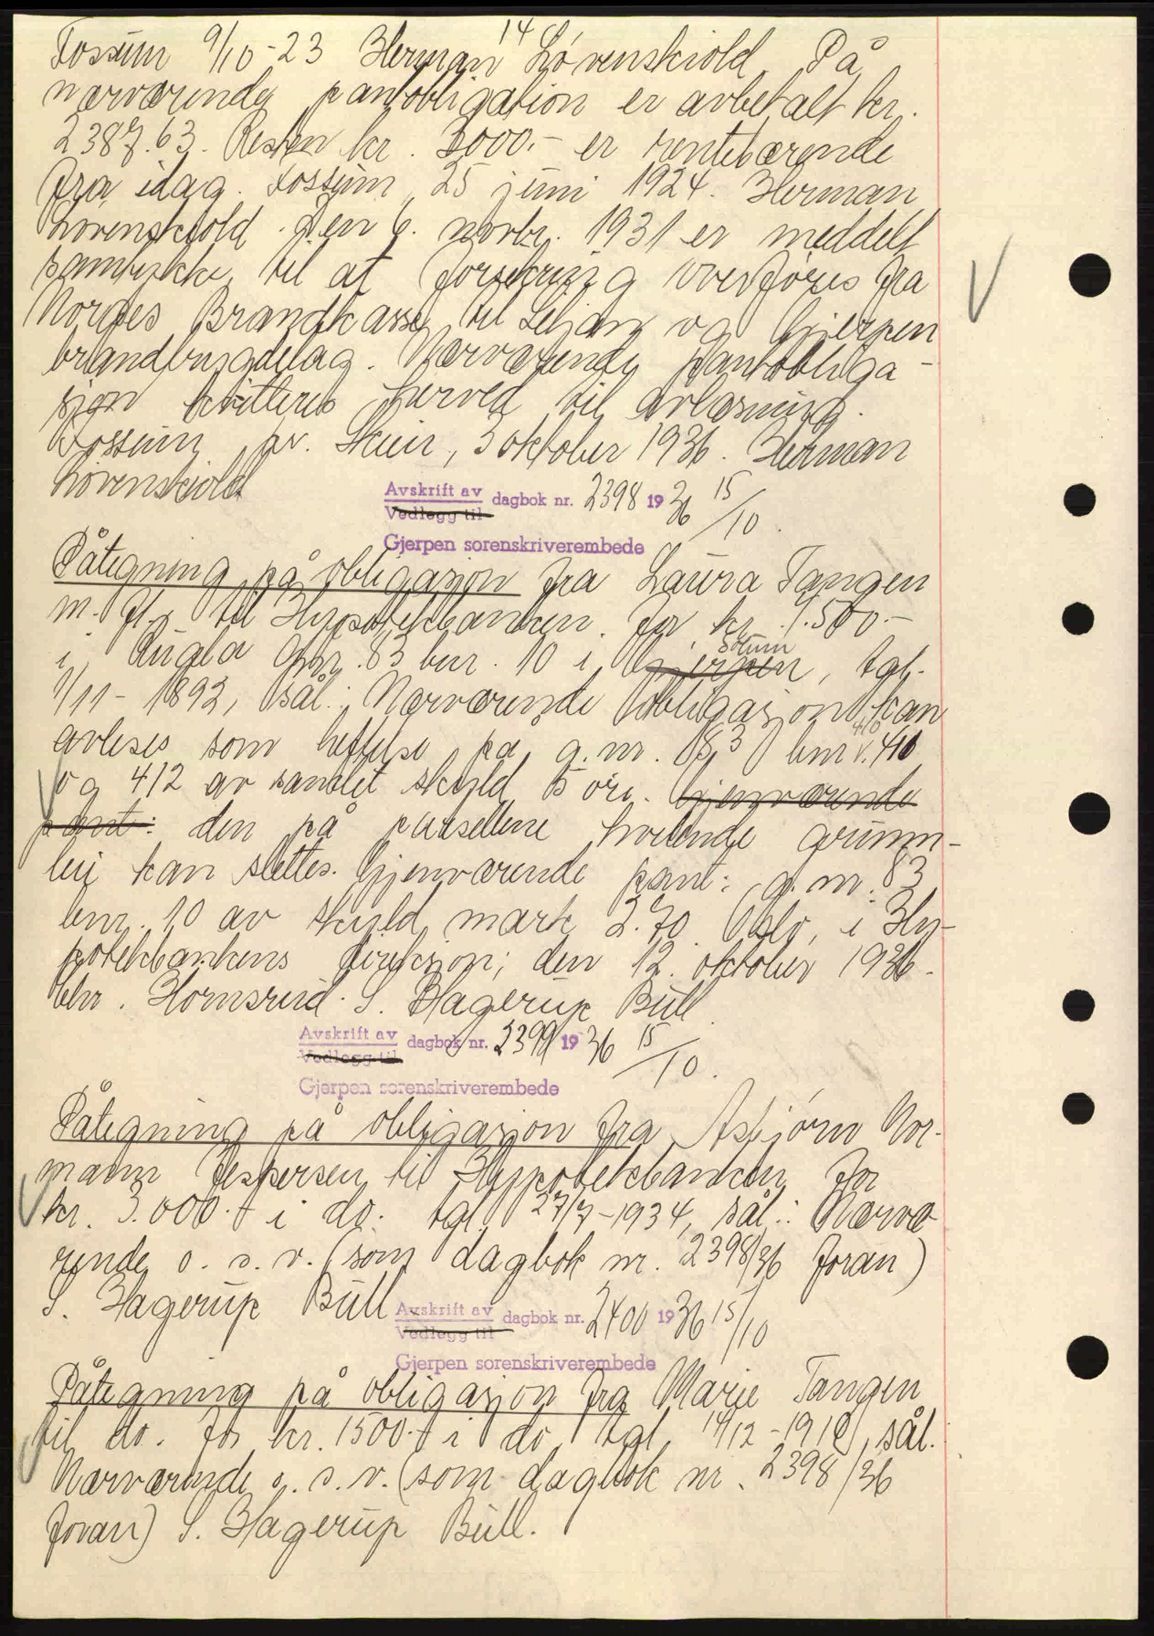 14
Fossum 9/10-23 Herman Løvenskiold På
nærværende pantobligation er avbetalt kr.
2387.63. Resten kr. 3000.- er rentebærende
fra idag. Fossum, 25 juni 1924. Herman
Løvenskiold. Den 6. novbr. 1931 er meddelt
samtykke til at forsikring overføres fra
Norges Brandkasse til Solum og Gjerpen
brandbygdelag. Nærværende pantobliga-
sjon kvitteres herved til avlesning.
Fossum pr. Skien, 3 oktober 1936. Herman
Løvenskiold
Avskrift av dagbok nr. 2398 1936 15/10.
Vedlegg til
Gjerpen sorenskriverembede
Påtegning på obligasjon fra Laura Tangen
m. fl. til Hypotekbanken for kr. 1.500.-
i Rugla gnr. 83 bnr. 10 i Gjerpen Solum, tgl.
1/11-1892, sål.: Nærværende obligasjon kan
avleses som heftelse på g.nr. 83 bnr. 410
og 412 av samlet skyld 5 øre. Gjenværende
pant: den på parsellene hvilende grunn-
leie kan slettes. Gjenværende pant: g.nr. 83
bnr. 10 av skyld mark 2.70. Oslo, i Hy-
potekbankens direksjon, den 12. oktober 1936.
Chr. Hornsrud. S. Hagerup Bull.
Avskrift av dagbok nr. 2399 1936 15/10.
Vedlegg til
Gjerpen sorenskriverembede
Påtegning på obligasjon fra Asbjørn Nor-
mann Jespersen til Hyppotekbanken for
kr. 3.000.- i do. tgl. 27/7-1934, sål.: Nærvæ-
rende o. s. v. (som dagbok nr. 2398/36 foran)
S. Hagerup Bull
Avskrift av dagbok nr. 2400 1936 15/10
Vedlegg til
Gjerpen sorenskriverembede
Påtegning på obligasjon fra Marie Tangen
til do. for kr. 1500.- i do tgl. 14/12-1910, sål.
Nærværende o. s. v. (som dagbok nr. 2398/36
foran) S. Hagerup Bull.